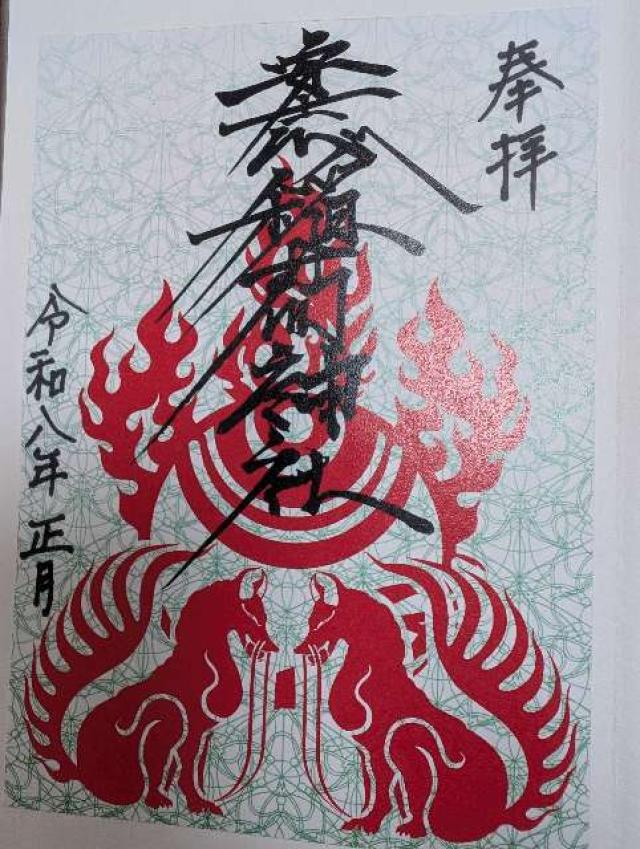 奉拝
稲荷神社
令和八年 正月